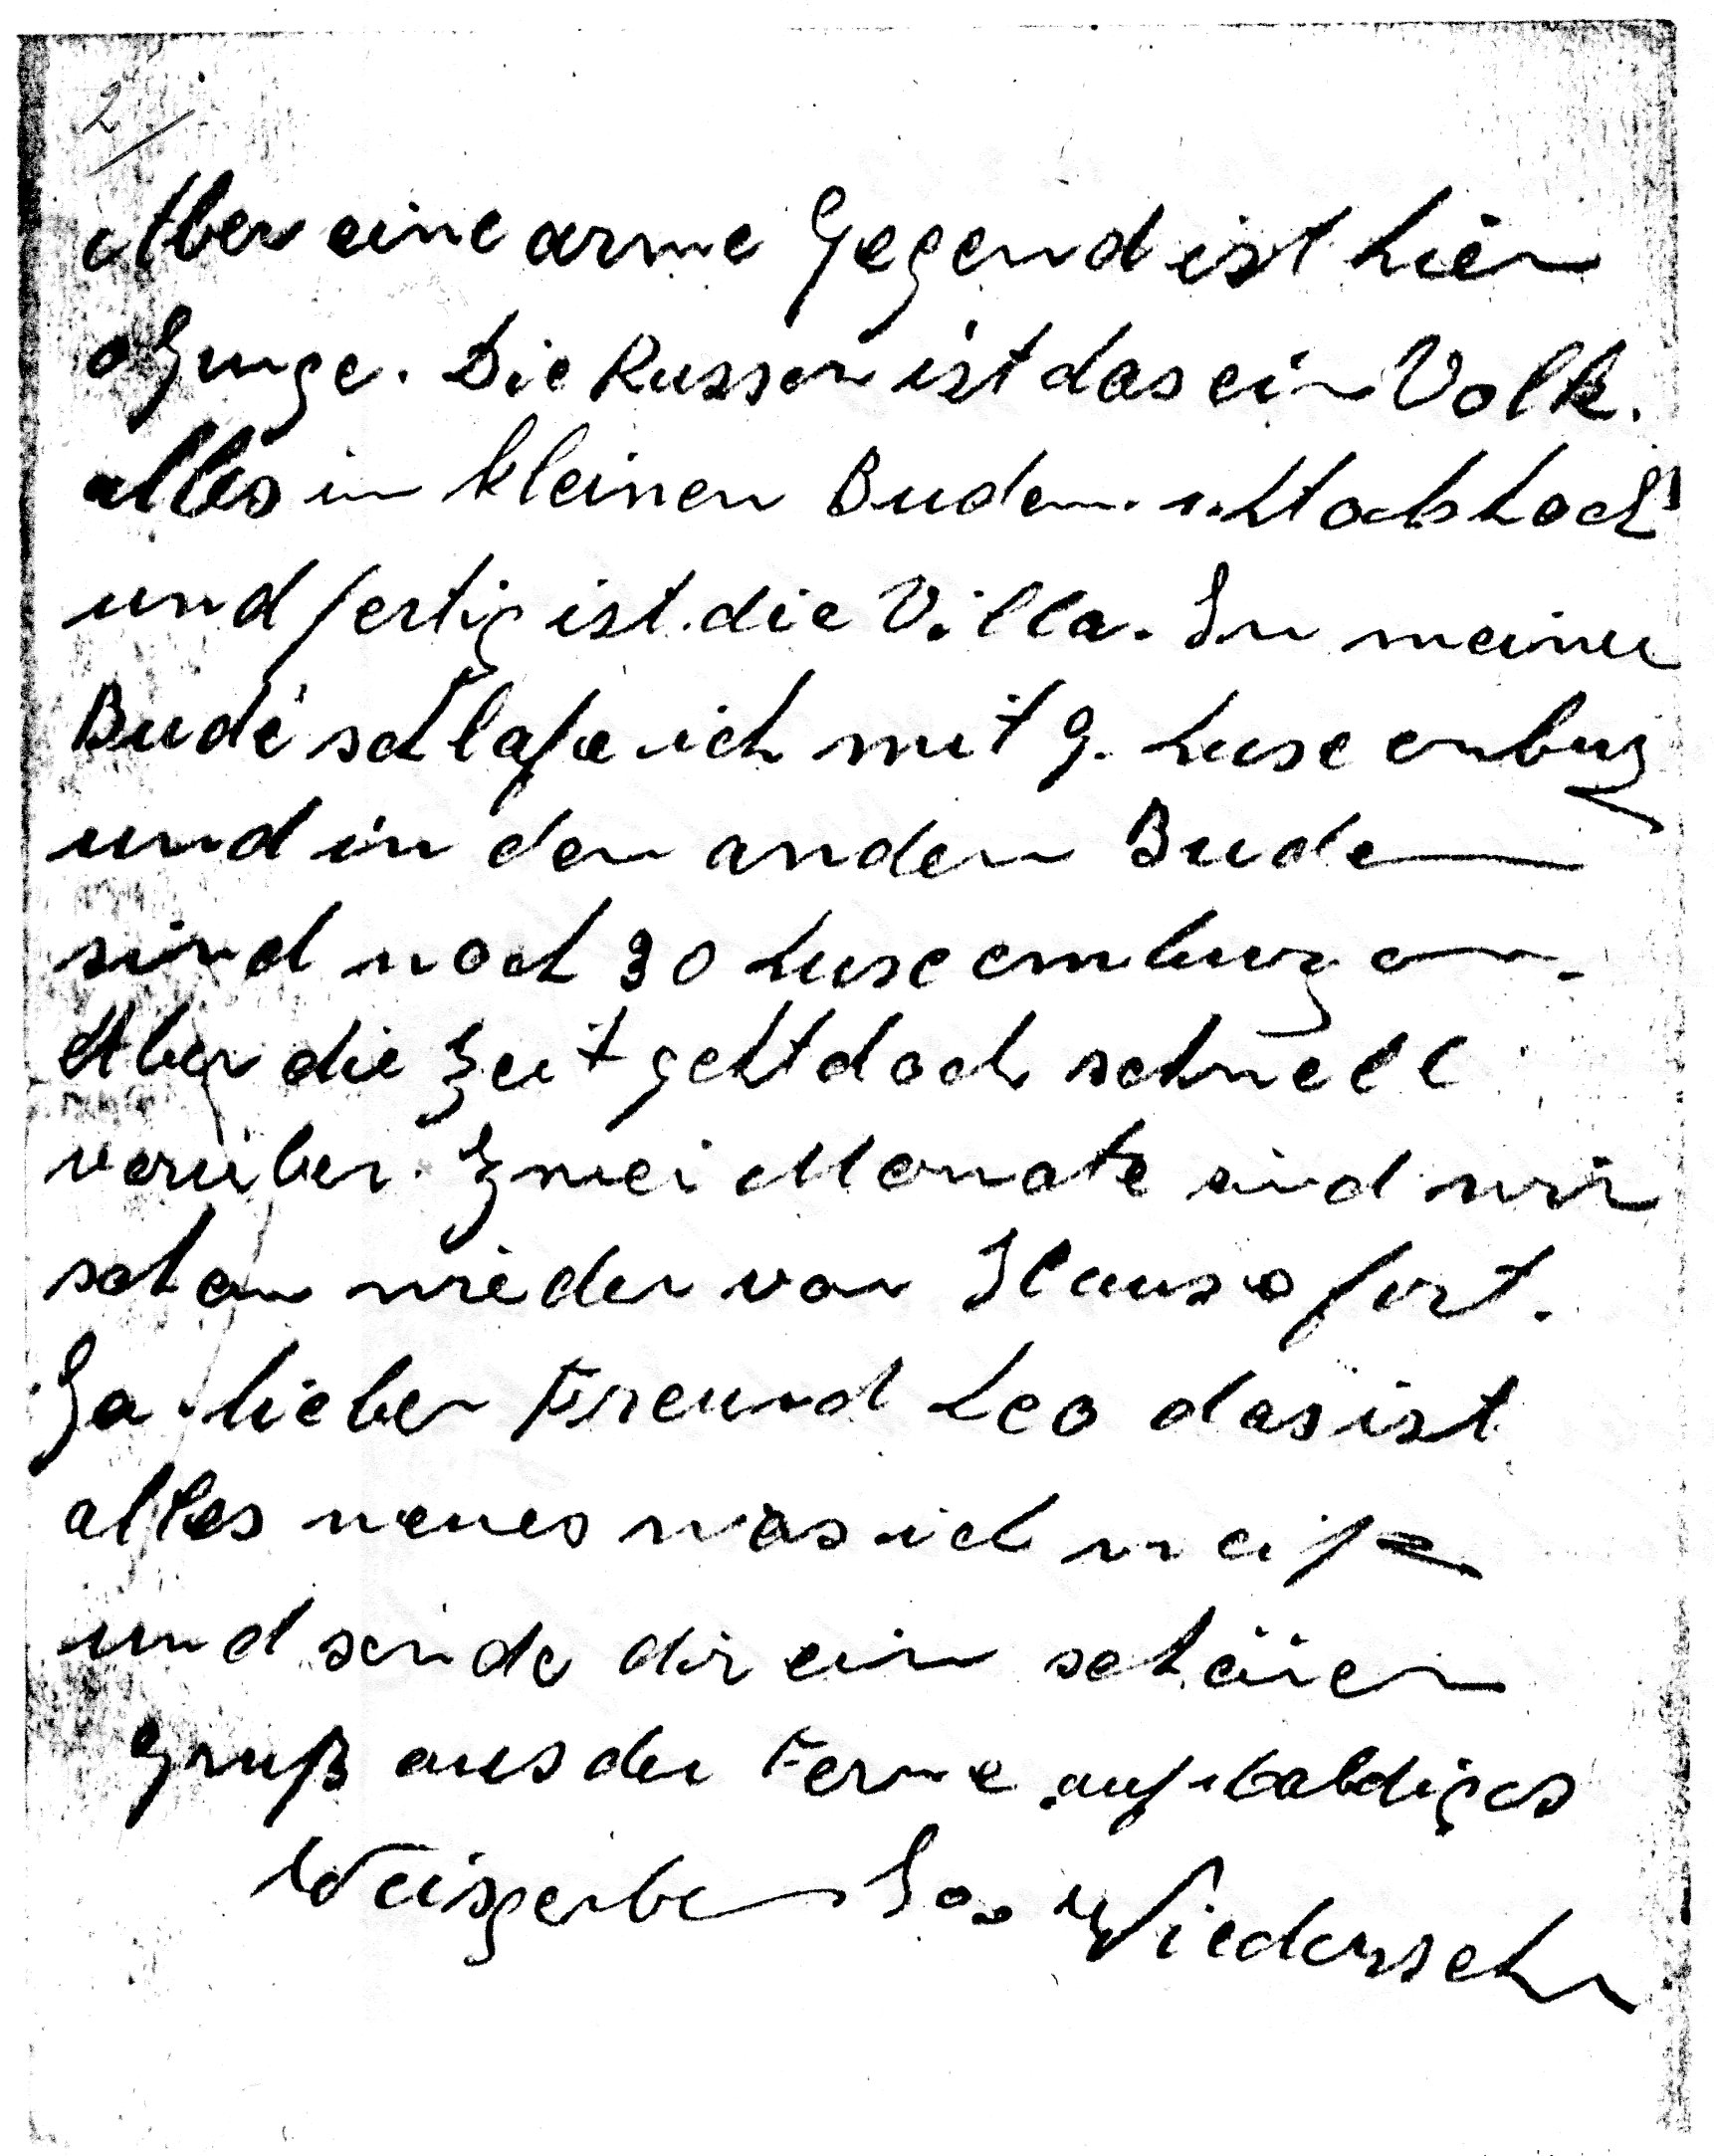 2/
Aber eine arme Gegend ist hier
Junge. Die Russen ist das ein Volk.
alles in kleinen Buden. 1. Stock hoch
und fertig ist die Villa. In meiner
Bude schlafe ich mit 9. Luxemburg
und in den anderen Buden
sind noch 30 Luxemburger.
Aber die Zeit geht doch schnell
vorüber. Zwei Monate sind wir
schon wieder von Hause fort.
Ja lieber Freund Leo das ist
alles neues was ich weiß
und sende dir ein schönen
Gruß aus der Ferne auf baldiges
Weisgerber Jos Wiedersehn